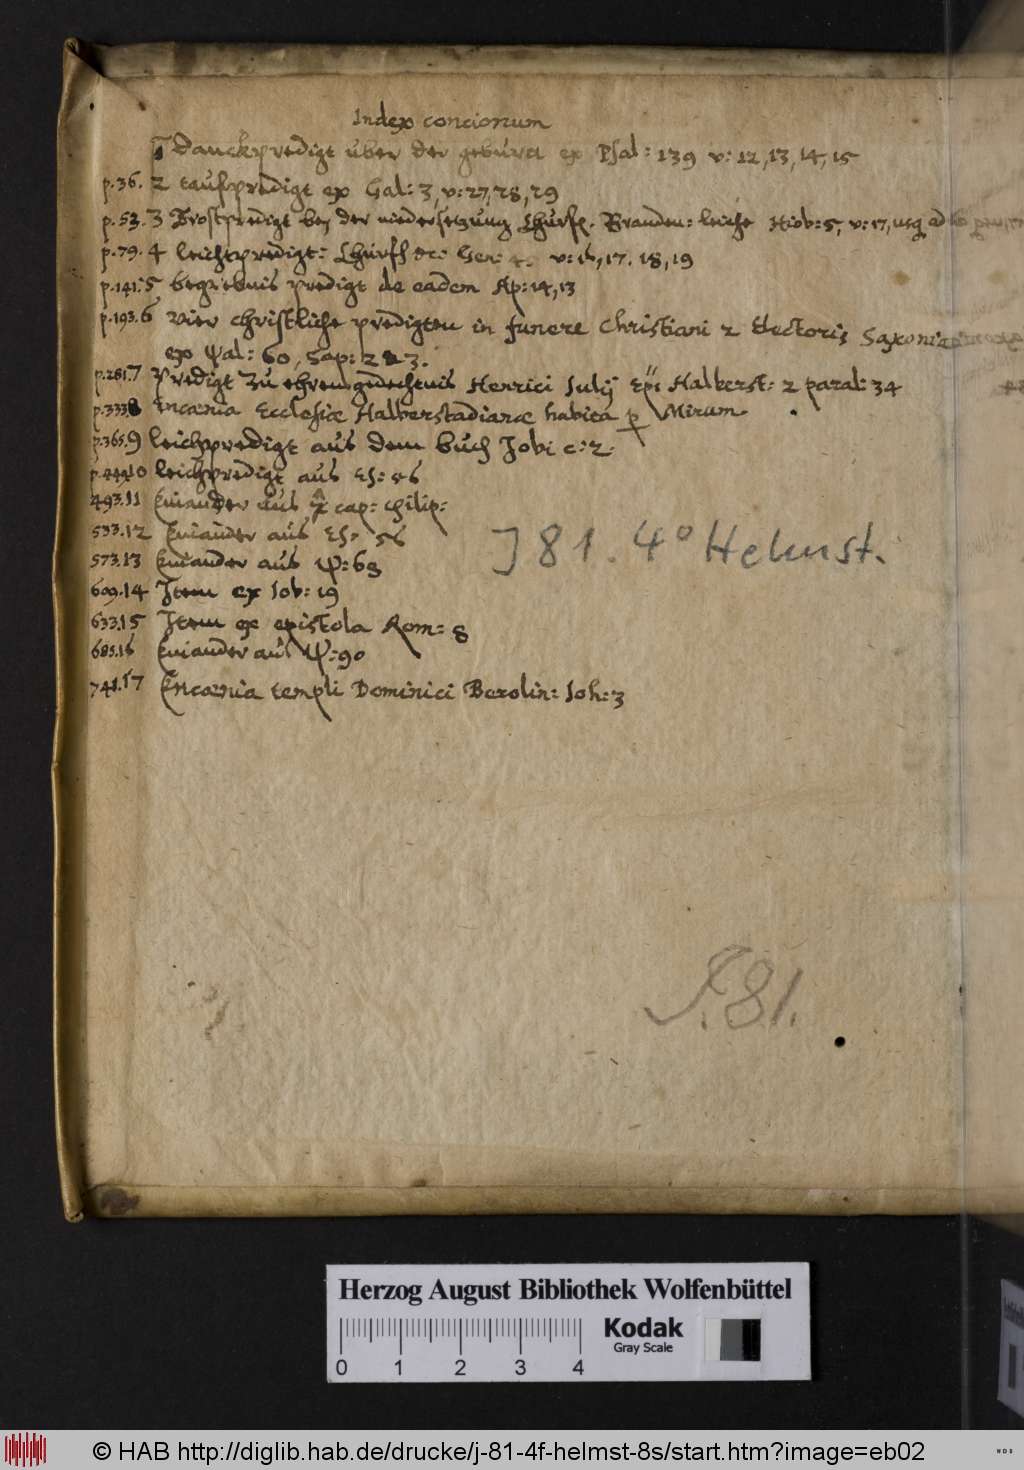 Index concionum
1 Danckpredigt uber der geburt ex Psal: 139 v: 12, 13, 14, 15
p. 36. 2 taufpredigt ex Gal: 3, v: 27, 28, 29
p. 53. 3 Trostpredigt bey der niedersetzung Churf. Branden: leiche Hiob: 5, v: 17, usq ad
p. 79. 4 leichtpredigt: Churf etc: Gen: v: 16, 17. 18, 19
p. 141. 5 begrebnis predigt de eadem Ap: 14, 13
p. 193. 6 Vier christliche predigten in funere Christiani 2 Electoris Saxoniae
ex Psal: 60, Sap: 2 & 3.
p. 281. 7 Predigt zu ehrengedechtnis Henrici Julij Epi Halberst: 2 paral: 34
p. 333 8 Encænia Ecclesiæ Halberstadianæ habita p Mirum
p. 365. 9 leichpredigt aus dem buch Jobi c: 2.
p. 449 10 leichpredigt aus Es: 56
493. 11 Eiusander aus cap: philip:
533. 12 aus Es: 56
573. 13 aus Ps: 68
609. 14 Item ex Iob: 19
633. 15 Item ex epistola Rom: 8
685. 16 aus Ps: 90
741. 17 Encænia templi Dominici Berolin: Ioh: 3
J 81. 4° Helmst.
J. 81.
Herzog August Bibliothek Wolfenbüttel
Kodak
Gray Scale
0 1 2 3 4
© HAB http://diglib.hab.de/drucke/j-81-4f-helmst-8s/start.htm?image=eb02